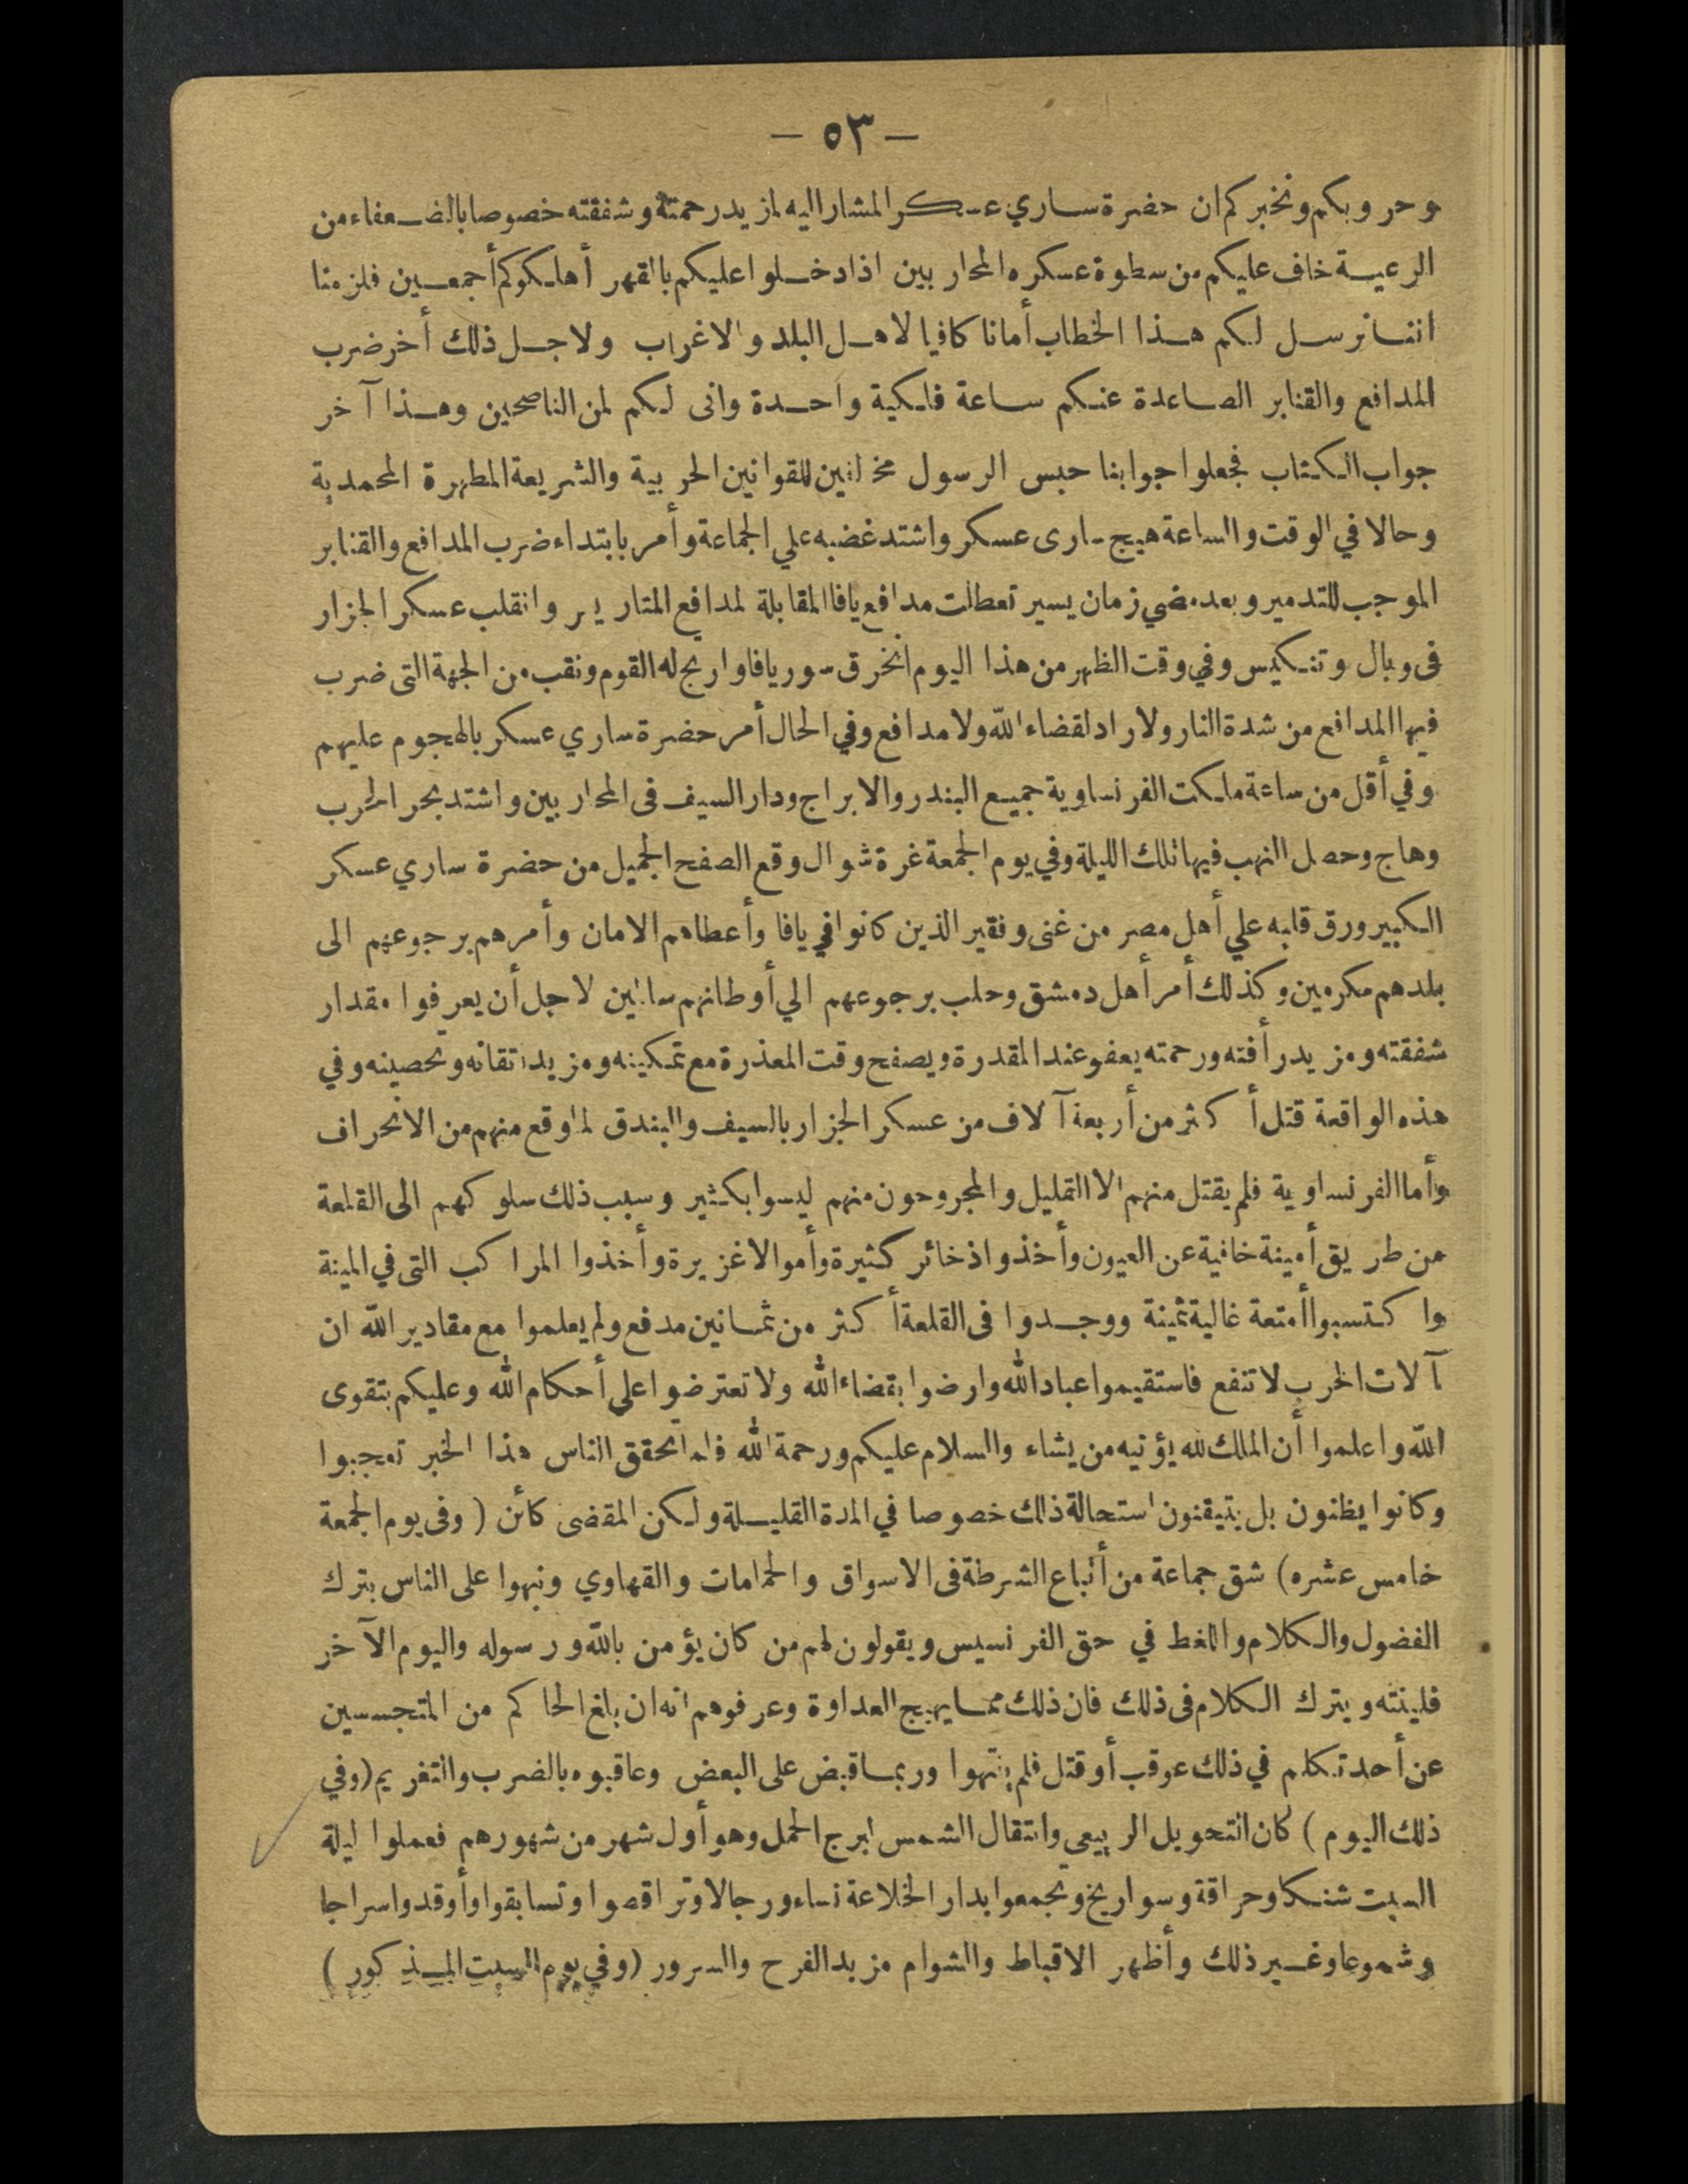 — ٥٣ —
وحروبكم ونخبركم ان حضرة ساري عسكر المشار اليه لمزيد رحمته وشفقته خصوصا بالضعفاء من
الرعية خاف عليكم من سطوة عسكره المحاربين اذا دخلوا عليكم بالقهر أهلكوكم أجمعين فلزمنا
اننا نرسل لكم هذا الخطاب أمانا كافيا لاهل البلد والاغراب ولاجل ذلك أخر ضرب
المدافع والقنابر الصاعدة عنكم ساعة فلكية واحدة وانى لكم لمن الناصحين وهذا آخر
جواب الكتاب فجعلوا جوابنا حبس الرسول مخالفين للقوانين الحربية والشريعة المطهرة المحمدية
وحالا في الوقت والساعة هيج سارى عسكر واشتد غضبه علي الجماعة وأمر بابتداء ضرب المدافع والقنابر
الموجب للتدمير وبعد مضي زمان يسير تعطلت مدافع يافا المقابلة لمدافع المتاريز وانقلب عسكر الجزار
فى وبال وتنكيس وفي وقت الظهر من هذا اليوم انخرق سور يافا وارتج له القوم ونقب من الجهة التى ضرب
فيها المدافع من شدة النار ولا راد لقضاء الله ولا مدافع وفي الحال أمر حضرة ساري عسكر بالهجوم عليهم
وفي أقل من ساعة ملكت الفرنساوية جميع البندر والابراج ودار السيف فى المحاربين واشتد بحر الحرب
وهاج وحصل النهب فيها تلك الليلة وفي يوم الجمعة غرة شوال وقع الصفح الجميل من حضرة ساري عسكر
الكبير ورق قلبه علي أهل مصر من غنى وفقير الذين كانوا في يافا وأعطاهم الامان وأمرهم برجوعهم الى
بلدهم مكرمين وكذلك أمر أهل دمشق وحلب برجوعهم الي أوطانهم سالمين لاجل أن يعرفوا مقدار
شفقته ومزيد رأفته ورحمته يعفو عند المقدرة ويصفح وقت المعذرة مع تمكينه ومزيد اتقانه وتحصينه وفي
هذه الواقعة قتل أكثر من أربعة آلاف من عسكر الجزار بالسيف والبندق لما وقع منهم من الانحراف
وأما الفرنساوية فلم يقتل منهم الا القليل والمجروحون منهم ليسوا بكثير وسبب ذلك سلوكهم الى القلعة
من طريق أمينة خافية عن العيون وأخذوا ذخائر كثيرة وأموالا غزيرة وأخذوا المراكب التى في المينة
واكتسبوا أمتعة غالية ثمينة ووجدوا فى القلعة أكثر من ثمانين مدفع ولم يعلموا مع مقادير الله ان
آلات الحرب لا تنفع فاستقيموا عباد الله وارضوا بقضاء الله ولا تعترضوا علي أحكام الله وعليكم بتقوى
الله واعلموا أن الملك لله يؤتيه من يشاء والسلام عليكم ورحمة الله فلما تحقق الناس هذا الخبر تعجبوا
وكانوا يظنون بل يتيقنون استحالة ذلك خصوصا في المدة القليلة ولكن المقضى كائن ( وفى يوم الجمعة
خامس عشره) شق جماعة من أتباع الشرطة فى الاسواق والحمامات والقهاوي ونبهوا على الناس بترك
الفضول والكلام واللغط في حق الفرنسيس ويقولون لهم من كان يؤمن بالله ورسوله واليوم الآخر
فلينته ويترك الكلام فى ذلك فان ذلك مما يهيج العداوة وعرفوهم انه ان بلغ الحاكم من المتجسسين
عن أحد تكلم في ذلك عوقب أو قتل فلم ينتهوا وربما قبض على البعض وعاقبوه بالضرب والتغريم (وفي
ذلك اليوم ) كان التحويل الربيعي وانتقال الشمس لبرج الحمل وهو أول شهر من شهورهم فعملوا ليلة
السبت شنكا وحراقة وسواريخ وتجمعوا بدار الخلاعة نساء ورجالا وتراقصوا وتسابقوا وأوقدوا سراجا
وشموعا وغير ذلك وأظهر الاقباط والشوام مزيد الفرح والسرور (وفي يوم السبت المذكور )